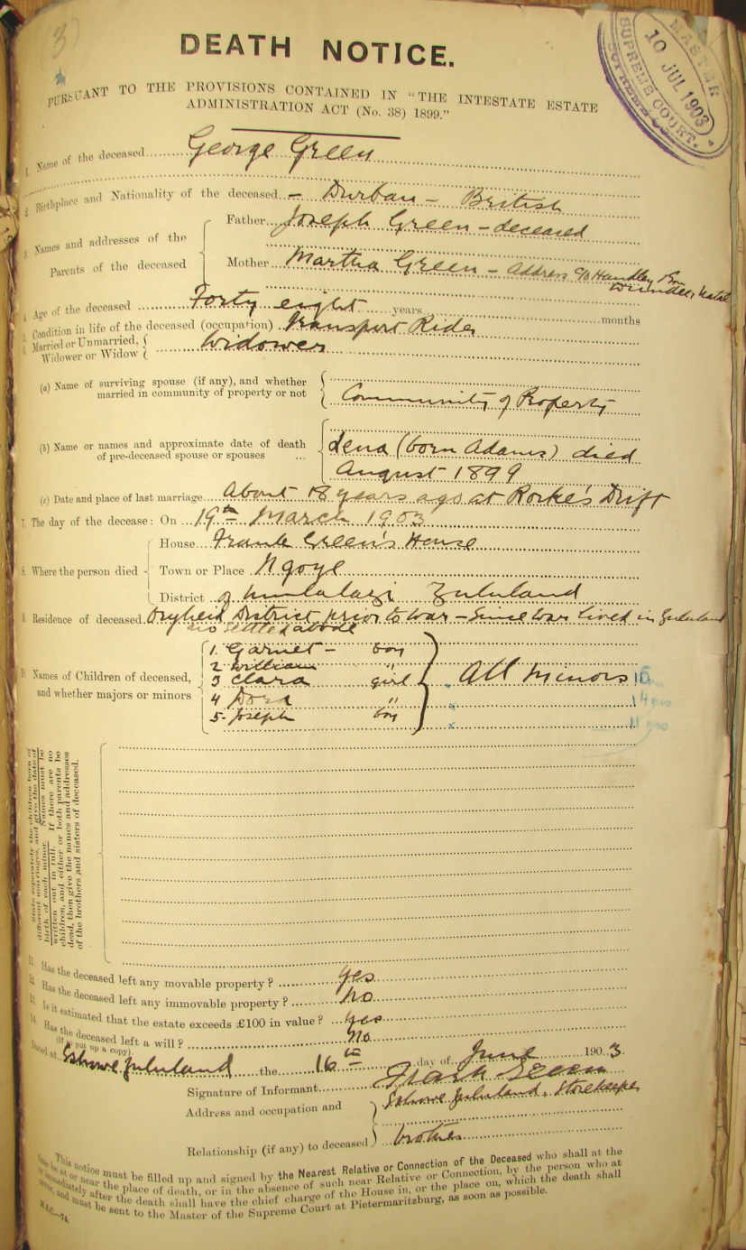 3)
DEATH NOTICE.
MASTER
SUPREME COURT.
10 JUL 1903
PURSUANT TO THE PROVISIONS CONTAINED IN "THE INTESTATE ESTATE
ADMINISTRATION ACT (No. 38) 1899."
1. Name of the deceased George Green
2. Birthplace and Nationality of the deceased – Durban – British
3. Names and addresses of the Parents of the deceased
Father Joseph Green – deceased
Mother Martha Green – address c/o Handley
Dundee, Natal
4. Age of the deceased Forty eight years months
5. Condition in life of the deceased (occupation) Transport Rider
Married or Unmarried,
Widower or Widow
Widower
(a) Name of surviving spouse (if any), and whether
married in community of property or not
Community of Property
(b) Name or names and approximate date of death
of pre-deceased spouse or spouses ...
Lena (born Adams) died
August 1899
(c) Date and place of last marriage About 18 years ago at Rorke's Drift
7. The day of the decease: On 19th March 1903
8. Where the person died
House Frank Green's House
Town or Place Ngoye
District of Umlalazi Zululand
9. Residence of deceased Vryheid District prior to War – Since War lived in Zululand
no settled abode
10. Names of Children of deceased,
and whether majors or minors
1. Garnet – boy
2 William "
3 Clara girl
4 Dora "
5. Joseph boy
All Minors
State separately the children born of
different marriages, and give the date of
birth of each minor. Names must be
written out in full. If there are no
children, and either or both parents be
dead, then give the names and addresses
of the brothers and sisters of deceased.
11. Has the deceased left any movable property? Yes
12. Has the deceased left any immovable property? No
13. Is it estimated that the estate exceeds £100 in value? Yes
14. Has the deceased left a will? No
(If so put up a copy)
Dated at Eshowe Zululand the 16th day of June 1903
Signature of Informant Frank Green
Address and occupation and
Eshowe Zululand. Storekeeper
Relationship (if any) to deceased
brother
This notice must be filled up and signed by the Nearest Relative or Connection of the Deceased who shall at the
time be at or near the place of death, or in the absence of such near Relative or Connection, by the person who at
or immediately after the death shall have the chief charge of the House in, or the place on, which the death shall
occur, and must be sent to the Master of the Supreme Court at Pietermaritzburg, as soon as possible.